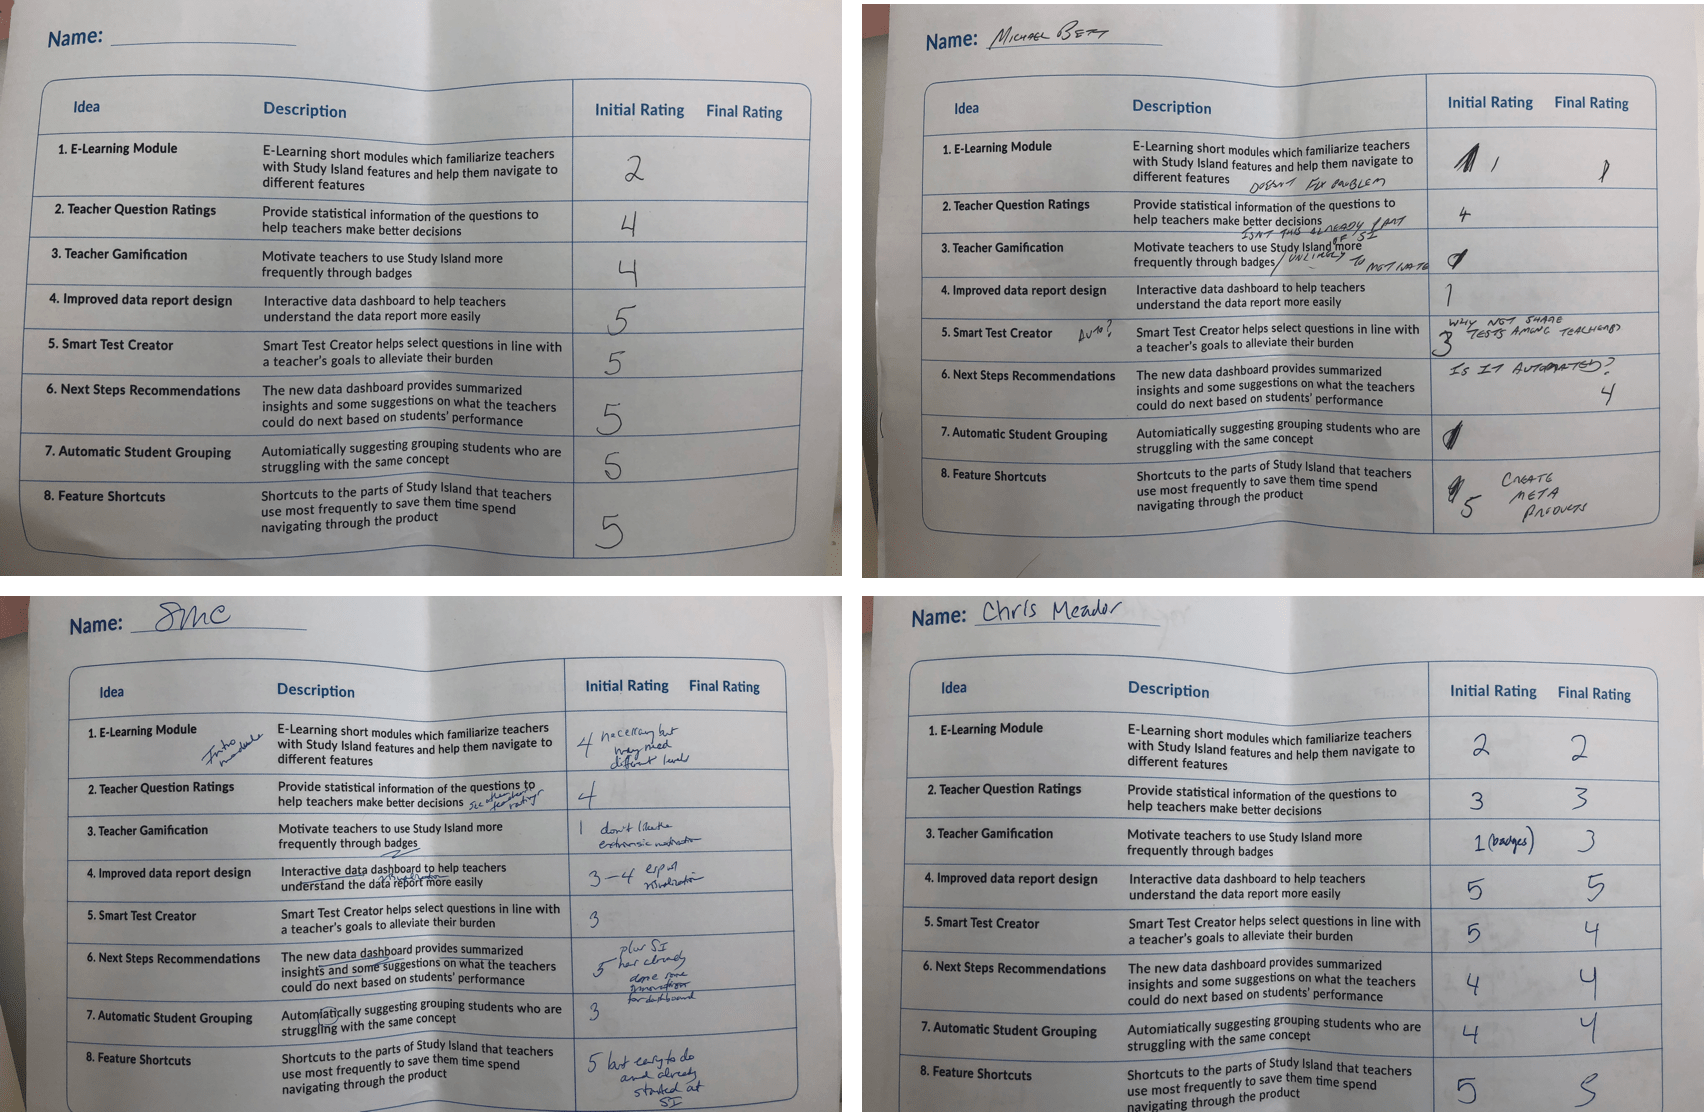 Name:
Idea Description Initial Rating Final Rating
1. E-Learning Module E-Learning short modules which familiarize teachers
with Study Island features and help them navigate to
different features
2
2. Teacher Question Ratings Provide statistical information of the questions to
help teachers make better decisions
4
3. Teacher Gamification Motivate teachers to use Study Island more
frequently through badges
4
4. Improved data report design Interactive data dashboard to help teachers
understand the data report more easily
5
5. Smart Test Creator Smart Test Creator helps select questions in line with
a teacher's goals to alleviate their burden
5
6. Next Steps Recommendations The new data dashboard provides summarized
insights and some suggestions on what the teachers
could do next based on students' performance
5
7. Automatic Student Grouping Automiatically suggesting grouping students who are
struggling with the same concept
5
8. Feature Shortcuts Shortcuts to the parts of Study Island that teachers
use most frequently to save them time spend
navigating through the product
5
Name: Michael Bett
Idea Description Initial Rating Final Rating
1. E-Learning Module E-Learning short modules which familiarize teachers
with Study Island features and help them navigate to
different features DOESN'T FIX PROBLEM
1 1
2. Teacher Question Ratings Provide statistical information of the questions to
help teachers make better decisions
4
ISN'T THIS ALREADY PART
OF SI
3. Teacher Gamification Motivate teachers to use Study Island more
frequently through badges / UNLIKELY TO MOTIVATE
4. Improved data report design Interactive data dashboard to help teachers
understand the data report more easily
1
5. Smart Test Creator AUTO? Smart Test Creator helps select questions in line with
a teacher's goals to alleviate their burden
WHY NOT SHARE
3 TESTS AMONG TEACHERS
6. Next Steps Recommendations The new data dashboard provides summarized
insights and some suggestions on what the teachers
could do next based on students' performance
IS IT AUTOMATED?
4
7. Automatic Student Grouping Automiatically suggesting grouping students who are
struggling with the same concept
8. Feature Shortcuts Shortcuts to the parts of Study Island that teachers
use most frequently to save them time spend
navigating through the product
5 CREATE
META
PRODUCTS
Name: SMC
Idea Description Initial Rating Final Rating
1. E-Learning Module E-Learning short modules which familiarize teachers
with Study Island features and help them navigate to
different features
Intro
module
4 necessary but
may need
different levels
2. Teacher Question Ratings Provide statistical information of the questions to
help teachers make better decisions see other
teacher
ratings
4
3. Teacher Gamification Motivate teachers to use Study Island more
frequently through badges
1 don't like the
extrinsic motivation
4. Improved data report design Interactive data dashboard to help teachers
understand the data report more easily
visualization
3-4
visualization
5. Smart Test Creator Smart Test Creator helps select questions in line with
a teacher's goals to alleviate their burden
3
6. Next Steps Recommendations The new data dashboard provides summarized
insights and some suggestions on what the teachers
could do next based on students' performance
5 plus SI
has already
done some
innovation
for dashboard
7. Automatic Student Grouping Automiatically suggesting grouping students who are
struggling with the same concept
3
8. Feature Shortcuts Shortcuts to the parts of Study Island that teachers
use most frequently to save them time spend
navigating through the product
5 but easy to do
and already
started at
SI
Name: Chris Meador
Idea Description Initial Rating Final Rating
1. E-Learning Module E-Learning short modules which familiarize teachers
with Study Island features and help them navigate to
different features
2 2
2. Teacher Question Ratings Provide statistical information of the questions to
help teachers make better decisions
3 3
3. Teacher Gamification Motivate teachers to use Study Island more
frequently through badges
1 (badges) 3
4. Improved data report design Interactive data dashboard to help teachers
understand the data report more easily
5 5
5. Smart Test Creator Smart Test Creator helps select questions in line with
a teacher's goals to alleviate their burden
5 4
6. Next Steps Recommendations The new data dashboard provides summarized
insights and some suggestions on what the teachers
could do next based on students' performance
4 4
7. Automatic Student Grouping Automiatically suggesting grouping students who are
struggling with the same concept
4 4
8. Feature Shortcuts Shortcuts to the parts of Study Island that teachers
use most frequently to save them time spend
navigating through the product
5 5